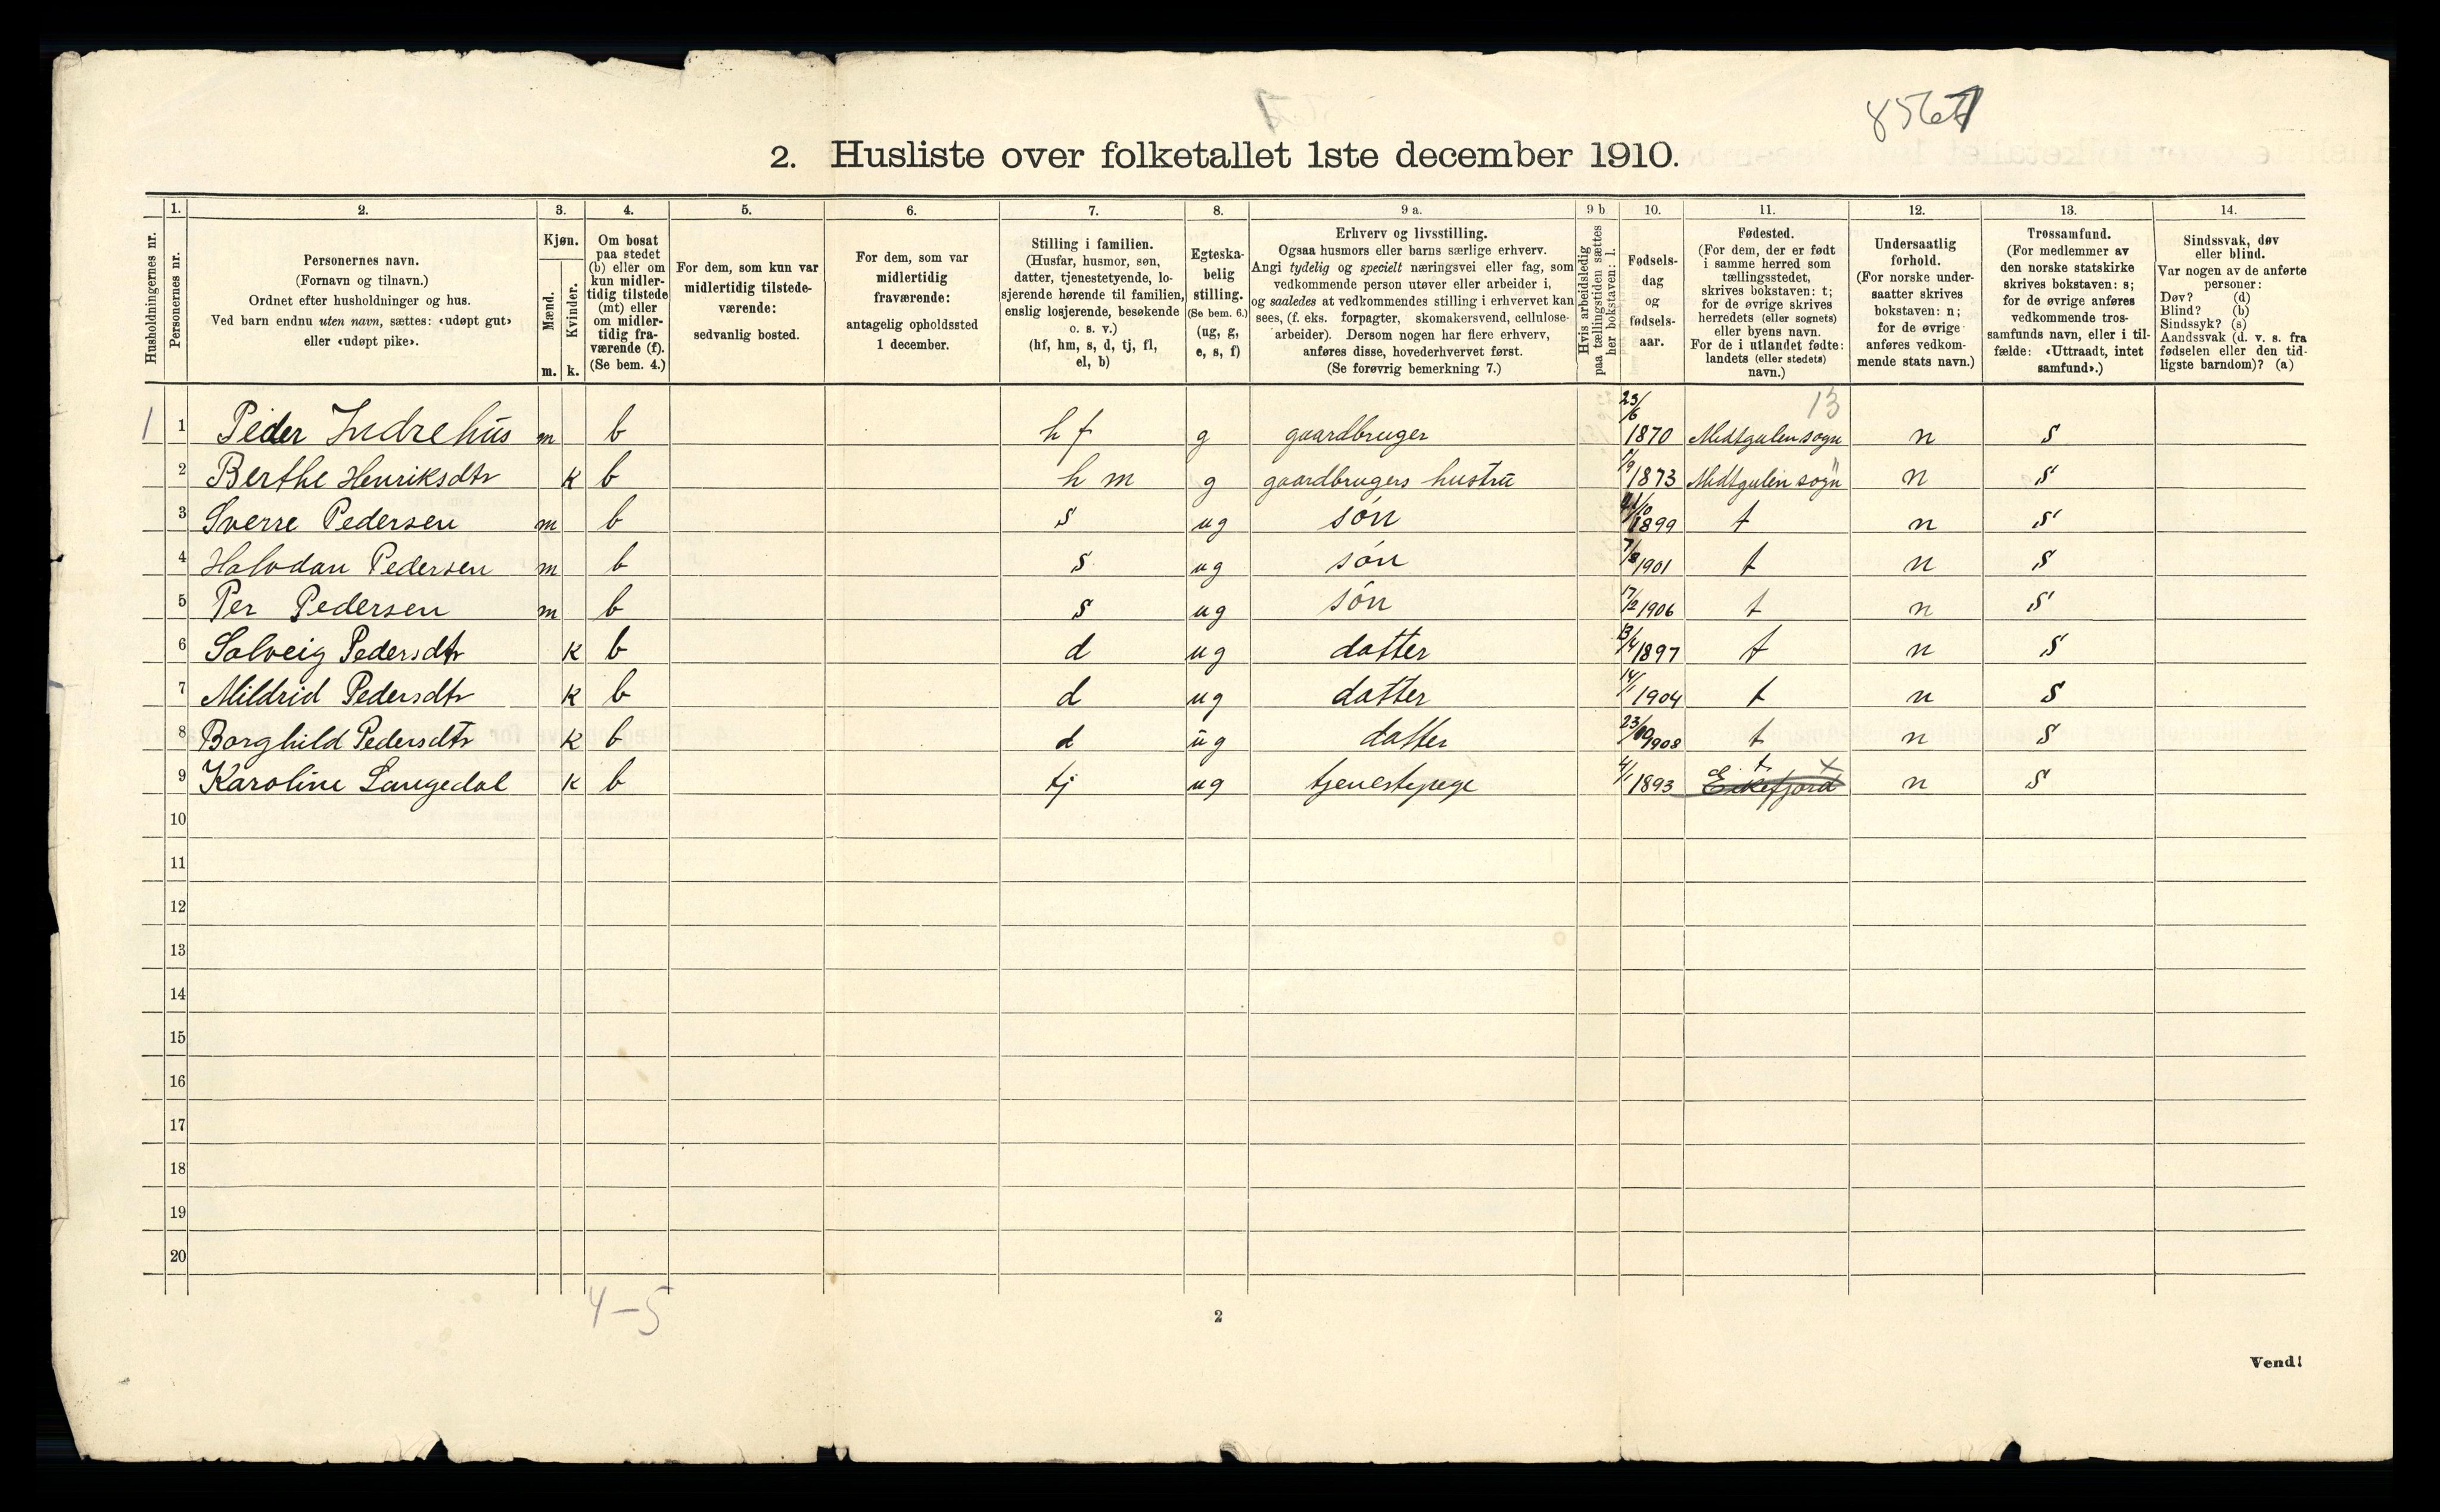 2. Husliste over folketallet 1ste december 1910.
1. 2. 3. 4. 5. 6. 7. 8. 9 a. 9 b 10. 11. 12. 13. 14.
Husholdningernes nr.
Personernes nr.
Personernes navn.
(Fornavn og tilnavn.)
Ordnet efter husholdninger og hus.
Ved barn endnu uten navn, sættes: «udøpt gut»
eller «udøpt pike».
Kjøn.
Mænd.
Kvinder.
m. k.
Om bosat
paa stedet
(b) eller om
kun midler-
tidig tilstede
(mt) eller
om midler-
tidig fra-
værende (f).
(Se bem. 4.)
For dem, som kun var
midlertidig tilstede-
værende:
sedvanlig bosted.
For dem, som var
midlertidig
fraværende:
antagelig opholdssted
1 december.
Stilling i familien.
(Husfar, husmor, søn,
datter, tjenestetyende, lo-
sjerende hørende til familien,
enslig losjerende, besøkende
o. s. v.)
(hf, hm, s, d, tj, fl,
el, b)
Egteska-
belig
stilling.
(Se bem. 6.)
(ug, g,
e, s, f)
Erhverv og livsstilling.
Ogsaa husmors eller barns særlige erhverv.
Angi tydelig og specielt næringsvei eller fag, som
vedkommende person utøver eller arbeider i,
og saaledes at vedkommendes stilling i erhvervet kan
sees, (f. eks. forpagter, skomakersvend, cellulose-
arbeider). Dersom nogen har flere erhverv,
anføres disse, hovederhvervet først.
(Se forøvrig bemerkning 7.)
Hvis arbeidsledig
paa tællingstiden sættes
her bokstaven: l.
Fødsels-
dag
og
fødsels-
aar.
Fødested.
(For dem, der er født
i samme herred som
tællingsstedet,
skrives bokstaven: t;
for de øvrige skrives
herredets (eller sognets)
eller byens navn.
For de i utlandet fødte:
landets (eller stedets)
navn.)
Undersaatlig
forhold.
(For norske under-
saatter skrives
bokstaven: n;
for de øvrige
anføres vedkom-
mende stats navn.)
Trossamfund.
(For medlemmer av
den norske statskirke
skrives bokstaven: s;
for de øvrige anføres
vedkommende tros-
samfunds navn, eller i til-
fælde: «Uttraadt, intet
samfund».)
Sindssvak, døv
eller blind.
Var nogen av de anførte
personer:
Døv? (d)
Blind? (b)
Sindssyk? (s)
Aandssvak (d. v. s. fra
fødselen eller den tid-
ligste barndom)? (a)
13
1 1 Peder Indrehus m b hf g gaardbruger 23/6 1870 Midtgulen sogn n s
2 Berthe Henriksdtr k b hm g gaardbrugers hustru 1873 Midtgulen sogn n s
3 Sverre Pedersen m b s ug søn 1899 t n s
4 Halvdan Pedersen m b s ug søn 7/8 1901 t n s
5 Per Pedersen m b s ug søn 17/2 1906 t n s
6 Solveig Pedersdtr k b d ug datter 13/4 1897 t n s
7 Mildrid Pedersdtr k b d ug datter 14/1 1904 t n s
8 Borghild Pedersdtr k b d ug datter 23/10 1908 t n s
9 Karoline Langedal k b tj ug tjenestepige 4/1 1893 t Eikefjord n s
10
11
12
13
14
15
16
17
18
19
20
4-5
2
Vend!